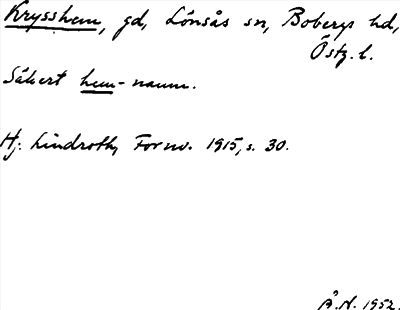 Krysshem, gd, Lönsås sn, Bobergs hd,
Östg. l.
Säkert hem-namn.
Hj. Lindroth, Fornv. 1915, s. 30.
Å.N. 1952.